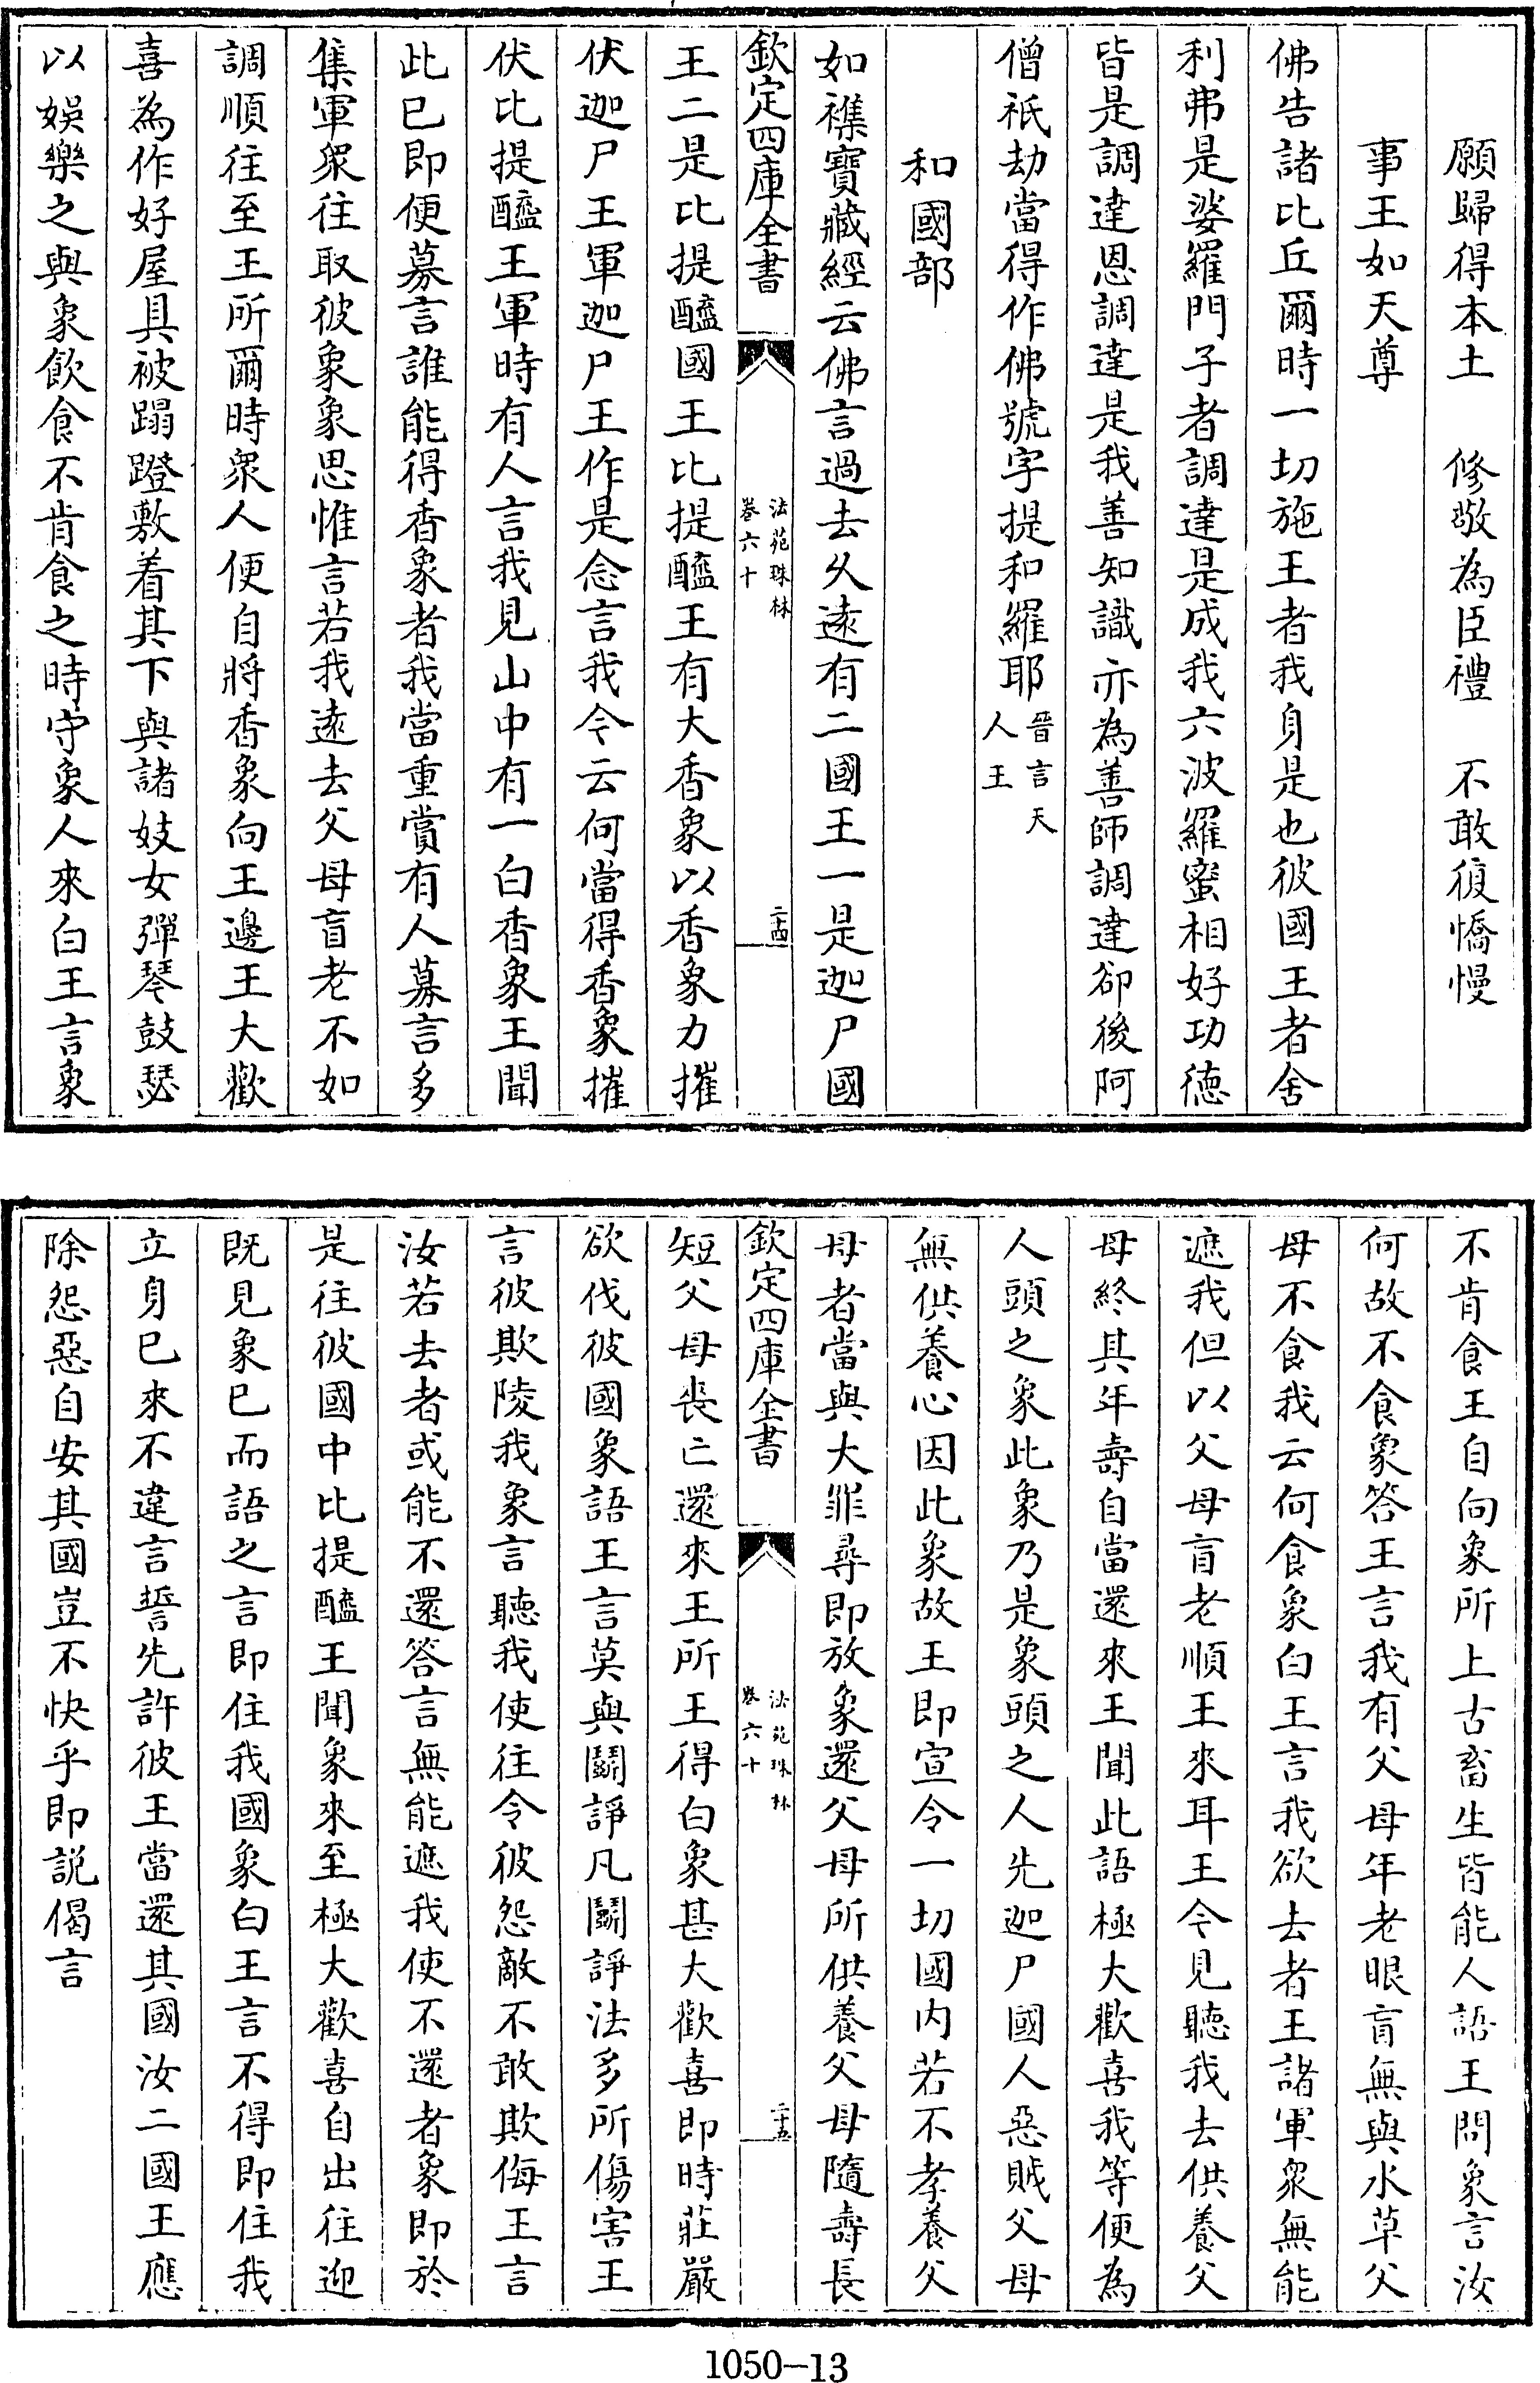 願歸得本土　修敬為臣禮　不敢復憍慢
事王如天尊
佛告諸比丘爾時一切施王者我身是也彼國王者舍
利弗是婆羅門子者調達是成我六波羅蜜相好功德
皆是調達恩調達是我善知識亦為善師調達卻後阿
僧祇劫當得作佛號字提和羅耶晉言天人王
和國部
如襍寶藏經云佛言過去久遠有二國王一是迦尸國
欽定四庫全書
法苑珠林
卷六十
二十四
王二是比提醯國王比提醯王有大香象以香象力摧
伏迦尸王軍迦尸王作是念言我今云何當得香象摧
伏比提醯王軍時有人言我見山中有一白香象王聞
此已即便募言誰能得香象者我當重賞有人募言多
集軍眾往取彼象象思惟言若我遠去父母盲老不如
調順往至王所爾時眾人便自將香象向王邊王大歡
喜為作好屋具被蹋蹬敷着其下與諸妓女彈琴鼓瑟
以娛樂之與象飲食不肯食之時守象人來白王言象
不肯食王自向象所上古畜生皆能人語王問象言汝
何故不食象答王言我有父母年老眼盲無與水草父
母不食我云何食象白王言我欲去者王諸軍眾無能
遮我但以父母盲老順王來耳王今見聽我去供養父
母終其年壽自當還來王聞此語極大歡喜我等便為
人頭之象此象乃是象頭之人先迦尸國人惡賊父母
無供養心因此象故王即宣令一切國內若不孝養父
母者當與大罪尋即放象還父母所供養父母隨壽長
欽定四庫全書
法苑珠林
卷六十
二十五
短父母喪亡還來王所王得白象甚大歡喜即時莊嚴
欲伐彼國象語王言莫與鬭諍凡鬭諍法多所傷害王
言彼欺陵我象言聽我使往令彼怨敵不敢欺侮王言
汝若去者或能不還答言無能遮我使不還者象即於
是往彼國中比提醯王聞象來至極大歡喜自出往迎
既見象已而語之言即住我國象白王言不得即住我
立身已來不違言誓先許彼王當還其國汝二國王應
除怨惡自安其國豈不快乎即說偈言
1050-13